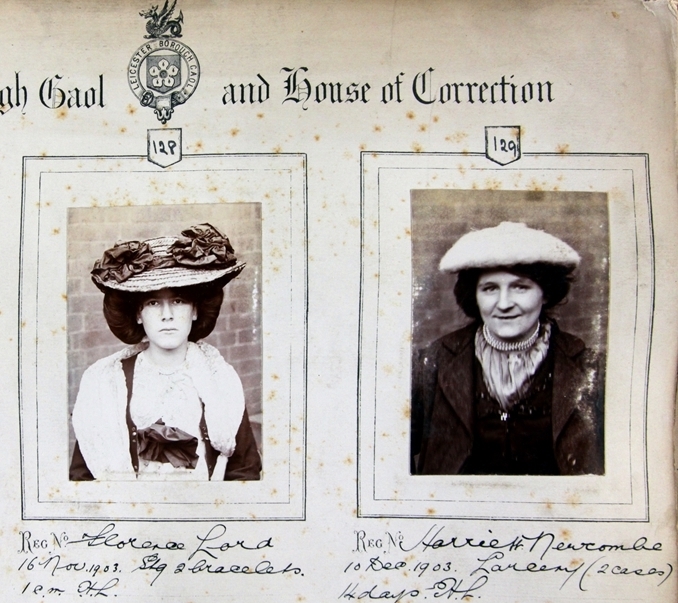 LEICESTER BOROUGH GAOL
gh Gaol and House of Correction
128
129
Reg No. Florence Lord
16 Nov. 1903. Stg 2 bracelets.
1 c.m. H.L.
Reg No. Harriett Newcombe
10 Dec. 1903. Larceny (2 cases)
14 days. H.L.